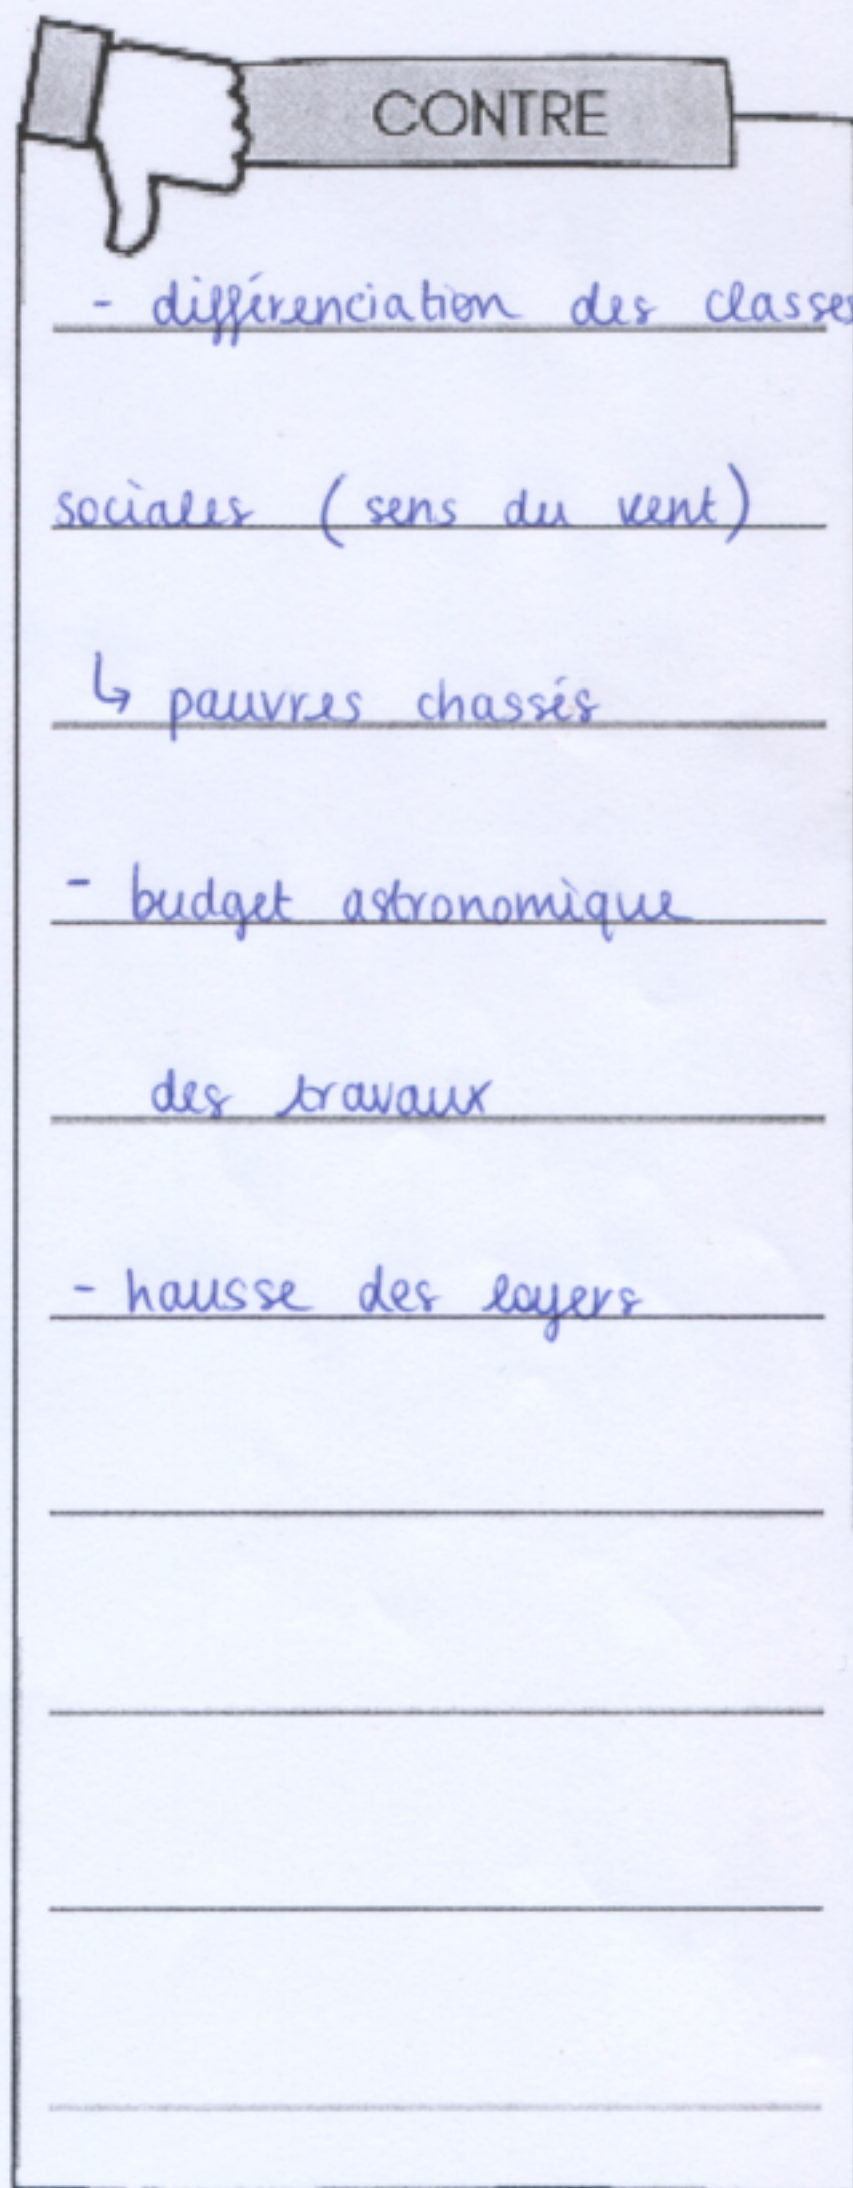 CONTRE
- différenciation des classes
sociales (sens du vent)
↳ pauvres chassés
- budget astronomique
des travaux
- hausse des loyers